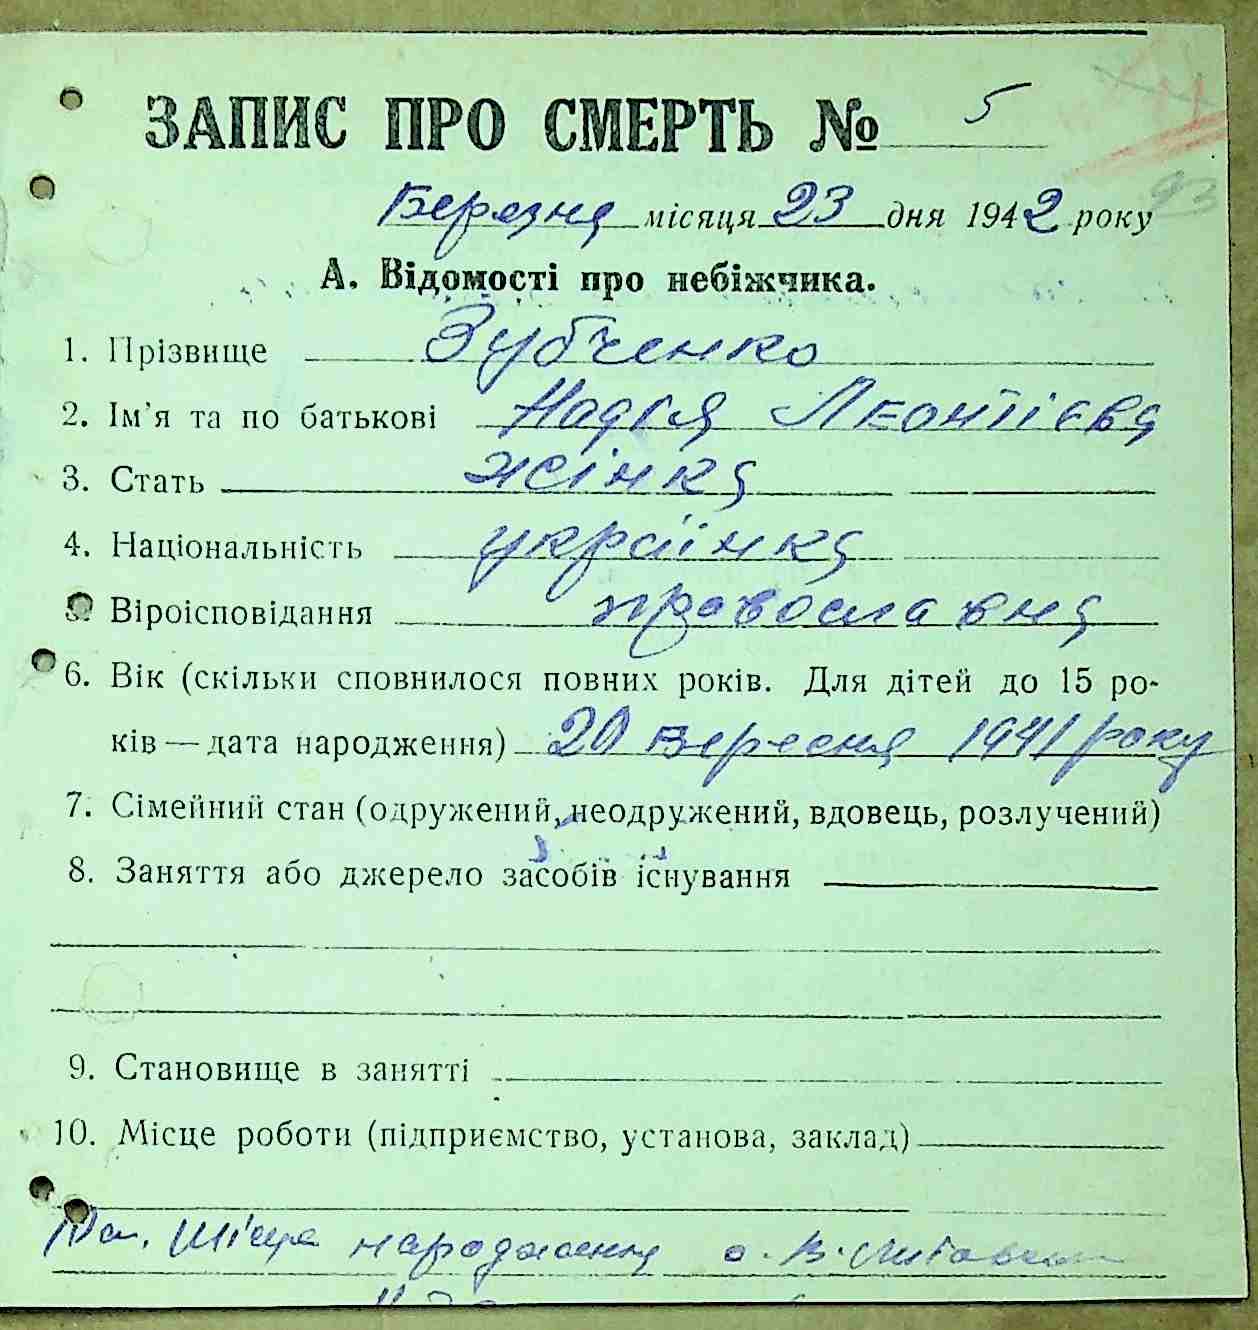 ЗАПИС ПРО СМЕРТЬ № 5
Березня місяця 23 дня 1942 року
93
А. Відомості про небіжчика.
1. Прізвище Зубченко
2. Ім'я та по батькові Надія Леонтієва
3. Стать жінка
4. Національність українка
5. Віроісповідання православня
6. Вік (скільки сповнилося повних років. Для дітей до 15 ро-
ків — дата народження) 20 Вересня 1941 року
7. Сімейний стан (одружений, неодружений, вдовець, розлучений)
8. Заняття або джерело засобів існування
9. Становище в занятті
10. Місце роботи (підприємство, установа, заклад)
народження с. В.